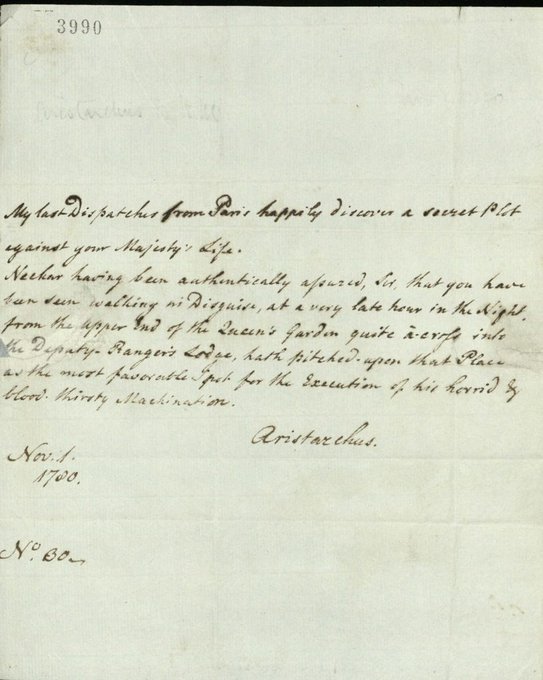 3990
My last Dispatches from Paris happily discover a secret Plot
against your Majesty's Life.
Neckar having been authentically assured, Sir, that you have
been seen walking in Disguise, at a very late hour in the Night,
from the upper End of the Queen's Garden quite a-cross into
the Deputy-Ranger's Lodge, hath pitched-upon that Place
as the most favorable Spot for the Execution of his horrid &
blood-thirsty Machination.
Aristarchus.
Nov. 1.
1780.
No. 30